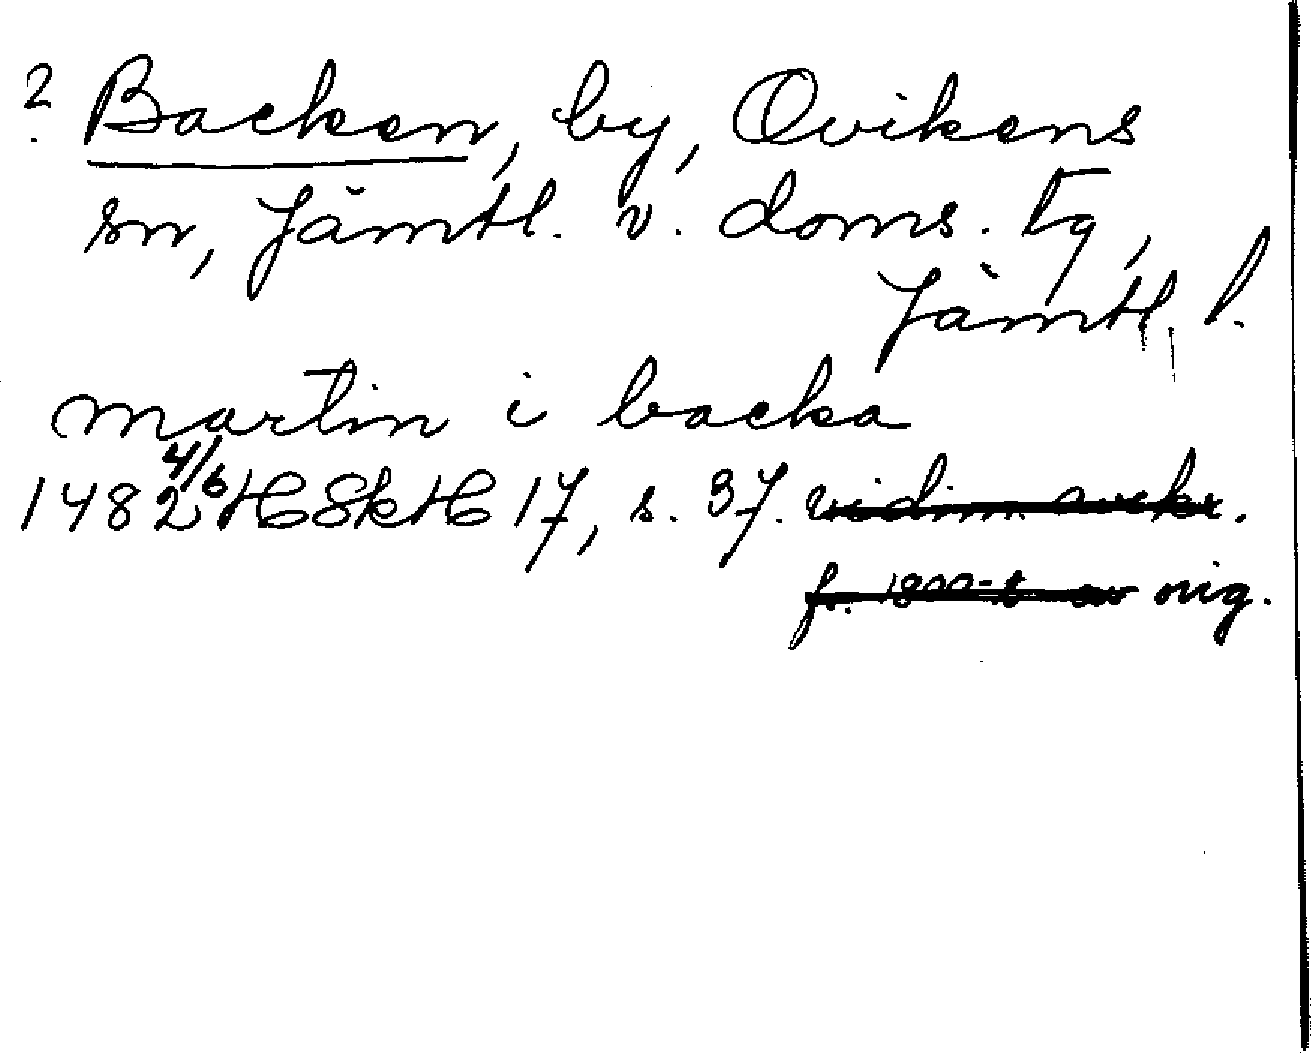 ? Backen, by, Ovikens
sn, Jämtl. v. doms. tg,
Jämtl. l.
martin i backa
1482 4/6 HSkH 17, s. 37. vidim. avskr.
fr. 1800-t av orig.